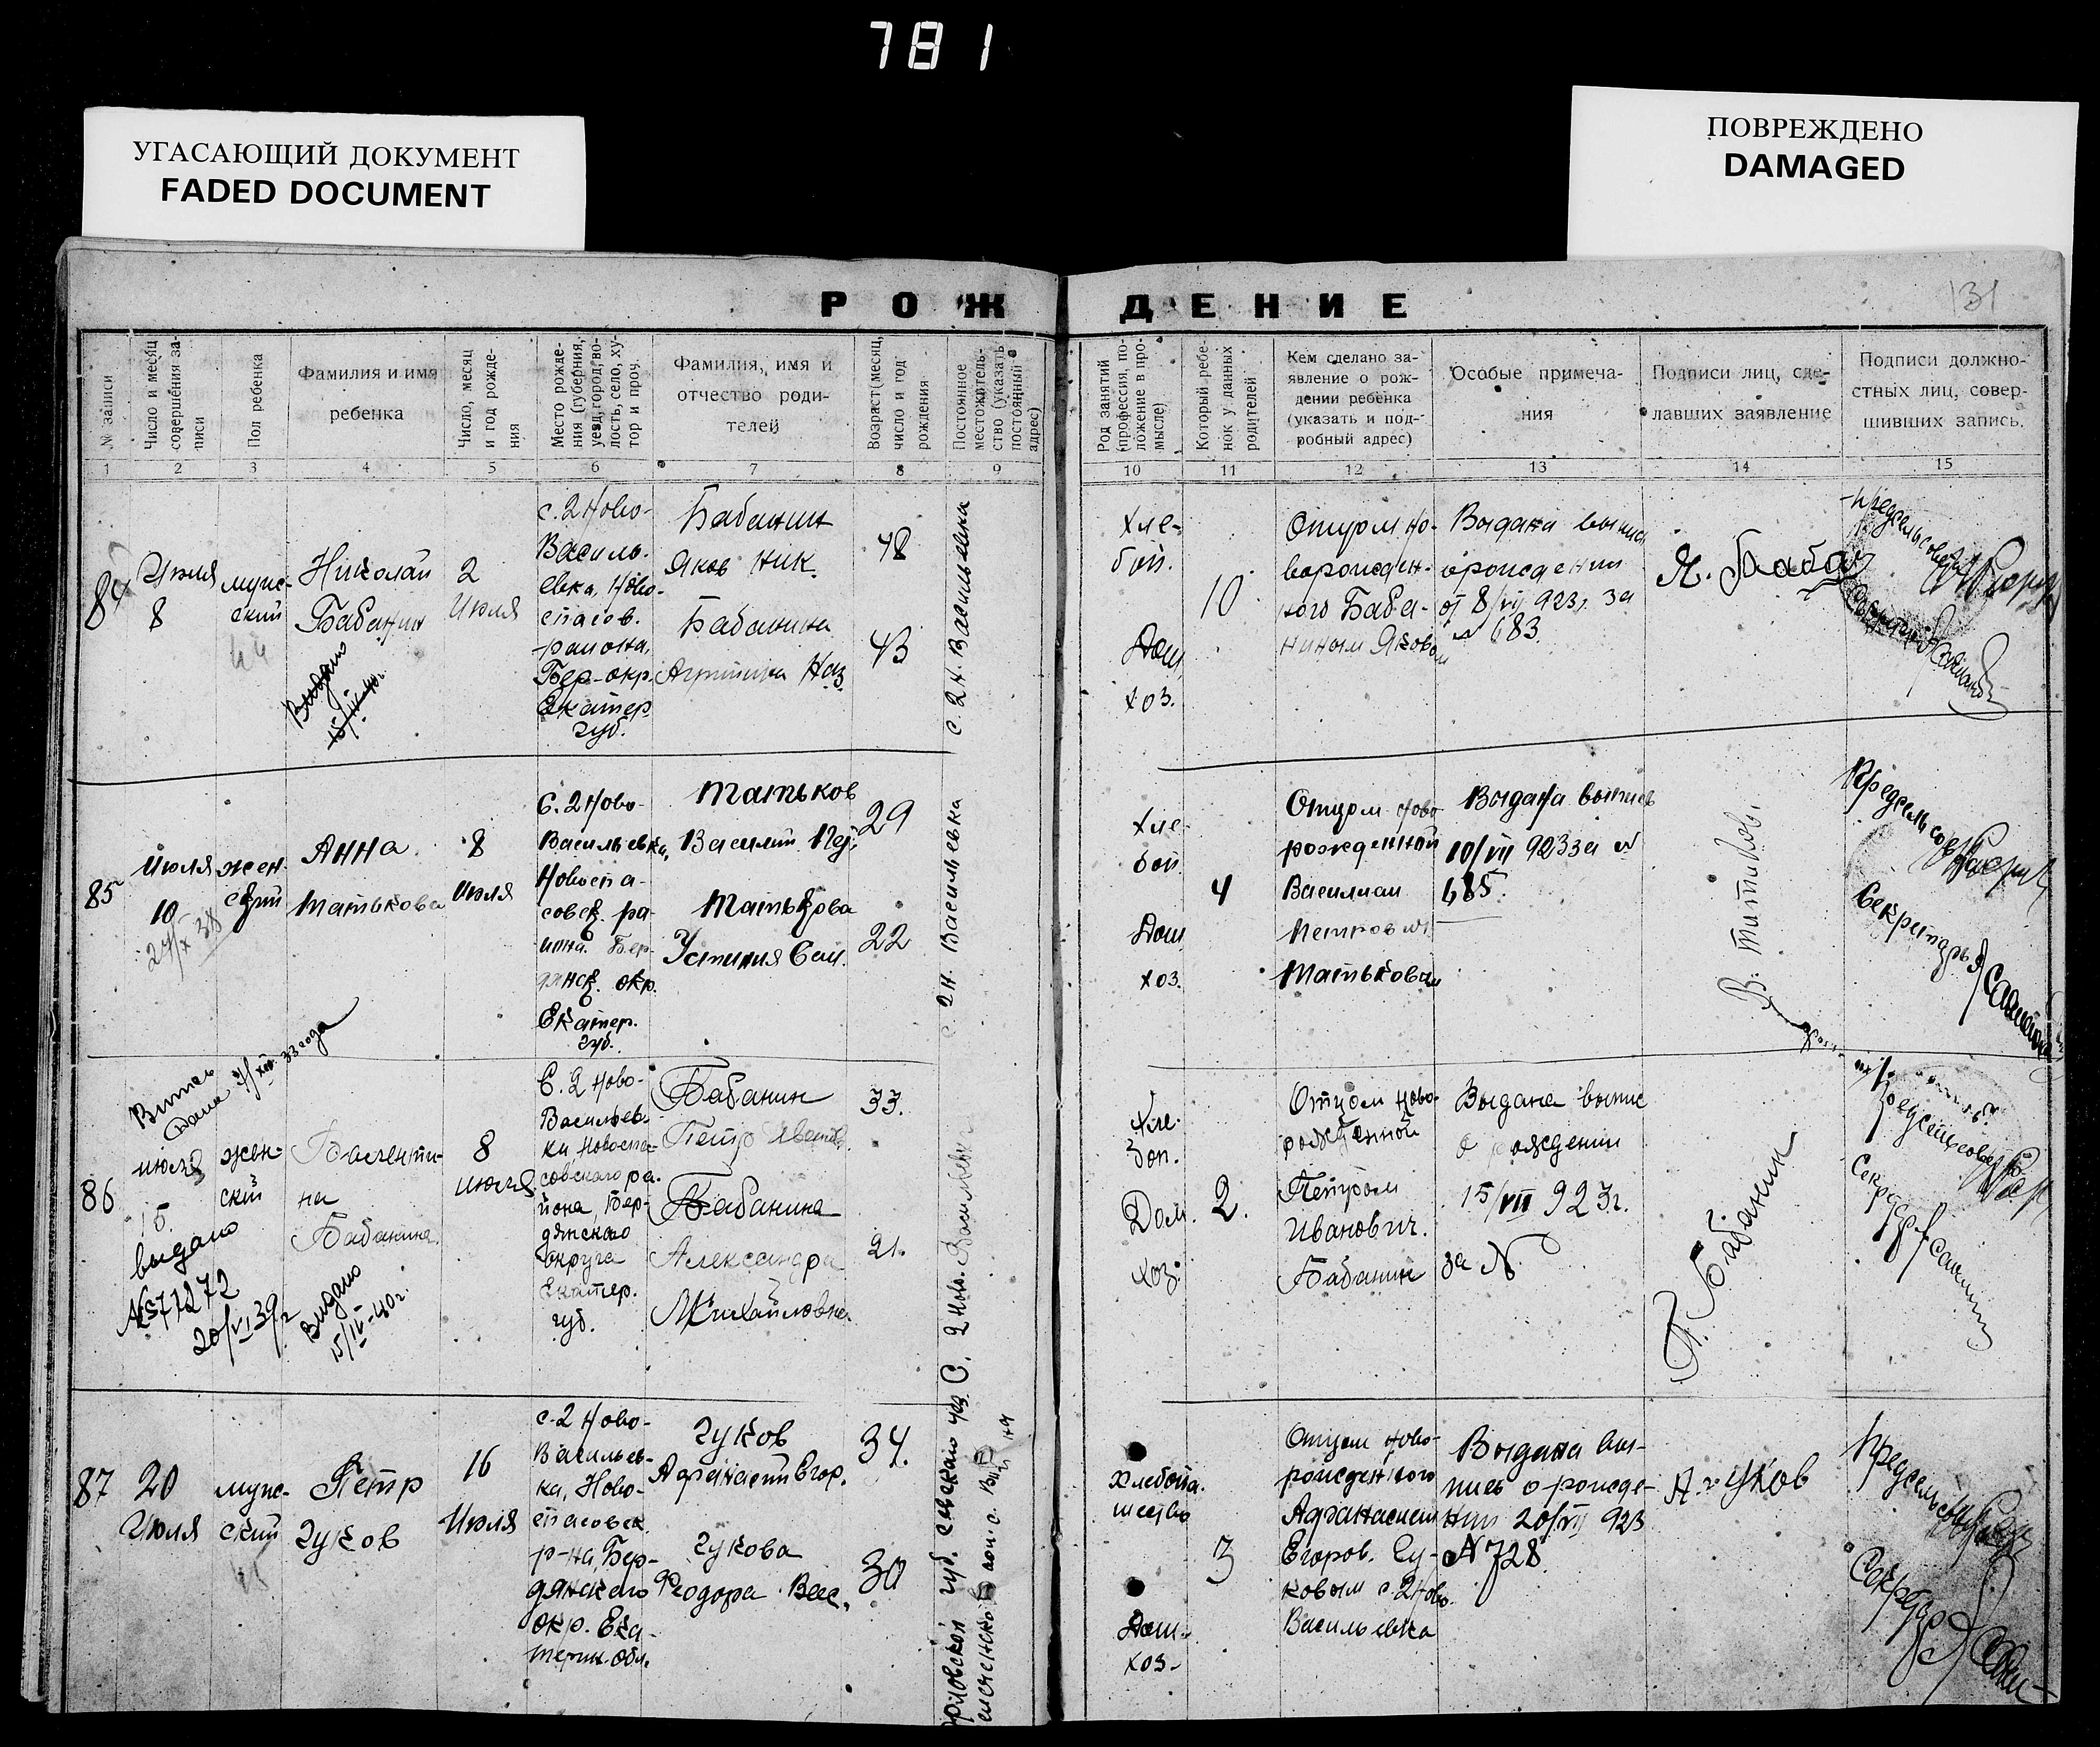 781
УГАСАЮЩИЙ ДОКУМЕНТ
FADED DOCUMENT
ПОВРЕЖДЕНО
DAMAGED
131
РОЖДЕНИЕ
№ записи
Число и месяц
совершения за-
писи
Пол ребенка
Фамилия и имя
ребенка
Число, месяц
и год рожде-
ния
Место рожде-
ния (губерния,
уезд, город, во-
лость, село, ху-
тор и проч.
Фамилия, имя и
отчество роди-
телей
Возраст (месяц,
число и год
рождения
Постоянное
местожитель-
ство (указать
постоянный
адрес)
Род занятий
(профессия, по-
ложение в про-
мысле)
Который ребе-
нок у данных
родителей
Кем сделано за-
явление о рож-
дении ребенка
(указать и под-
робный адрес)
Особые примеча-
ния
Подписи лиц, сде-
лавших заявление
Подписи должно-
стных лиц, совер-
шивших запись.
1 2 3 4 5 6 7 8 9 10 11 12 13 14 15
84
Июля
8
мужс-
ский
Николай
Бабанин
Выдано
15/IV-40г.
2
Июля
с. 2 Ново-
Василь-
евка, Ново-
спасов.
района,
Бер-окр.
Екатер.
губ.
Бабанин
Яков Ник.
Бабанина
48
43
с. 2 Н. Васильевка
хле-
боп.
Дом
хоз.
10
Отцом но-
ворожден-
ного Баба-
ниным Яковом
Выдана выпись
о рождении
от 8/VII 923г за
№ 683.
Я. Бабан
Предсельсовета
85
Июля
10
27/X 38
жен-
ский
Анна
Матькова
8
Июля
С. 2 Ново-
Васильевка,
Новоспа-
совск. ра-
иона. Бер-
дянск. окр.
Екатер.
губ.
Матьков
Василий Пет.
Матькова
Устиния Сем.
29
22
с. 2 Н. Васильевка
хле-
боп.
Дом
хоз.
4
Отцом ново-
рожденной
Василием
Петровым
Матьковым
Выдана выпись
10/VII 923 за №
685.
Предсельсов
Секретарь
86
Выпись
дана 7/XII 33 года
июля
15.
выдано
№ 577272
20/VI 39г
жен-
ский
Валенти-
на
Бабанина.
Выдано
15/IV-40г.
8
июля
С. 2 Ново-
Васильев-
ки, Новоспа-
совского ра-
йона, Бер-
дянского
округа
Екатер.
губ.
Бабанин
Петр Иванов.
Бабанина
Александра
Михайловна
33.
21.
С. 2 Ново. Васильевка
хле-
боп.
Дом.
хоз.
2.
Отцом ново-
рожденной
Петром
Иванович.
Бабанин
Выдана выпис
о рождении
15/VII 923г.
за №
П. Бабанин
Предсельсовета
87
20
Июля
мужс-
ский
Петр
Гуков
16
Июля
с. 2 Ново-
Васильев-
ка, Ново-
спасовск.
р-на, Бер-
дянского
окр. Ека-
терин. обл.
Гуков
Афанасий Егор.
Гукова
Феодора Вас.
34.
30
Хлебопа-
шество
Дом.
хоз.
3
Отцем ново-
рожденного
Афанасием
Егоров. Гу-
ковым с. 2 Ново-
Васильевка
Выдана вы-
пись о рожде-
нии 20/VII 923
№ 728.
А. Гуков
Предсельсовета